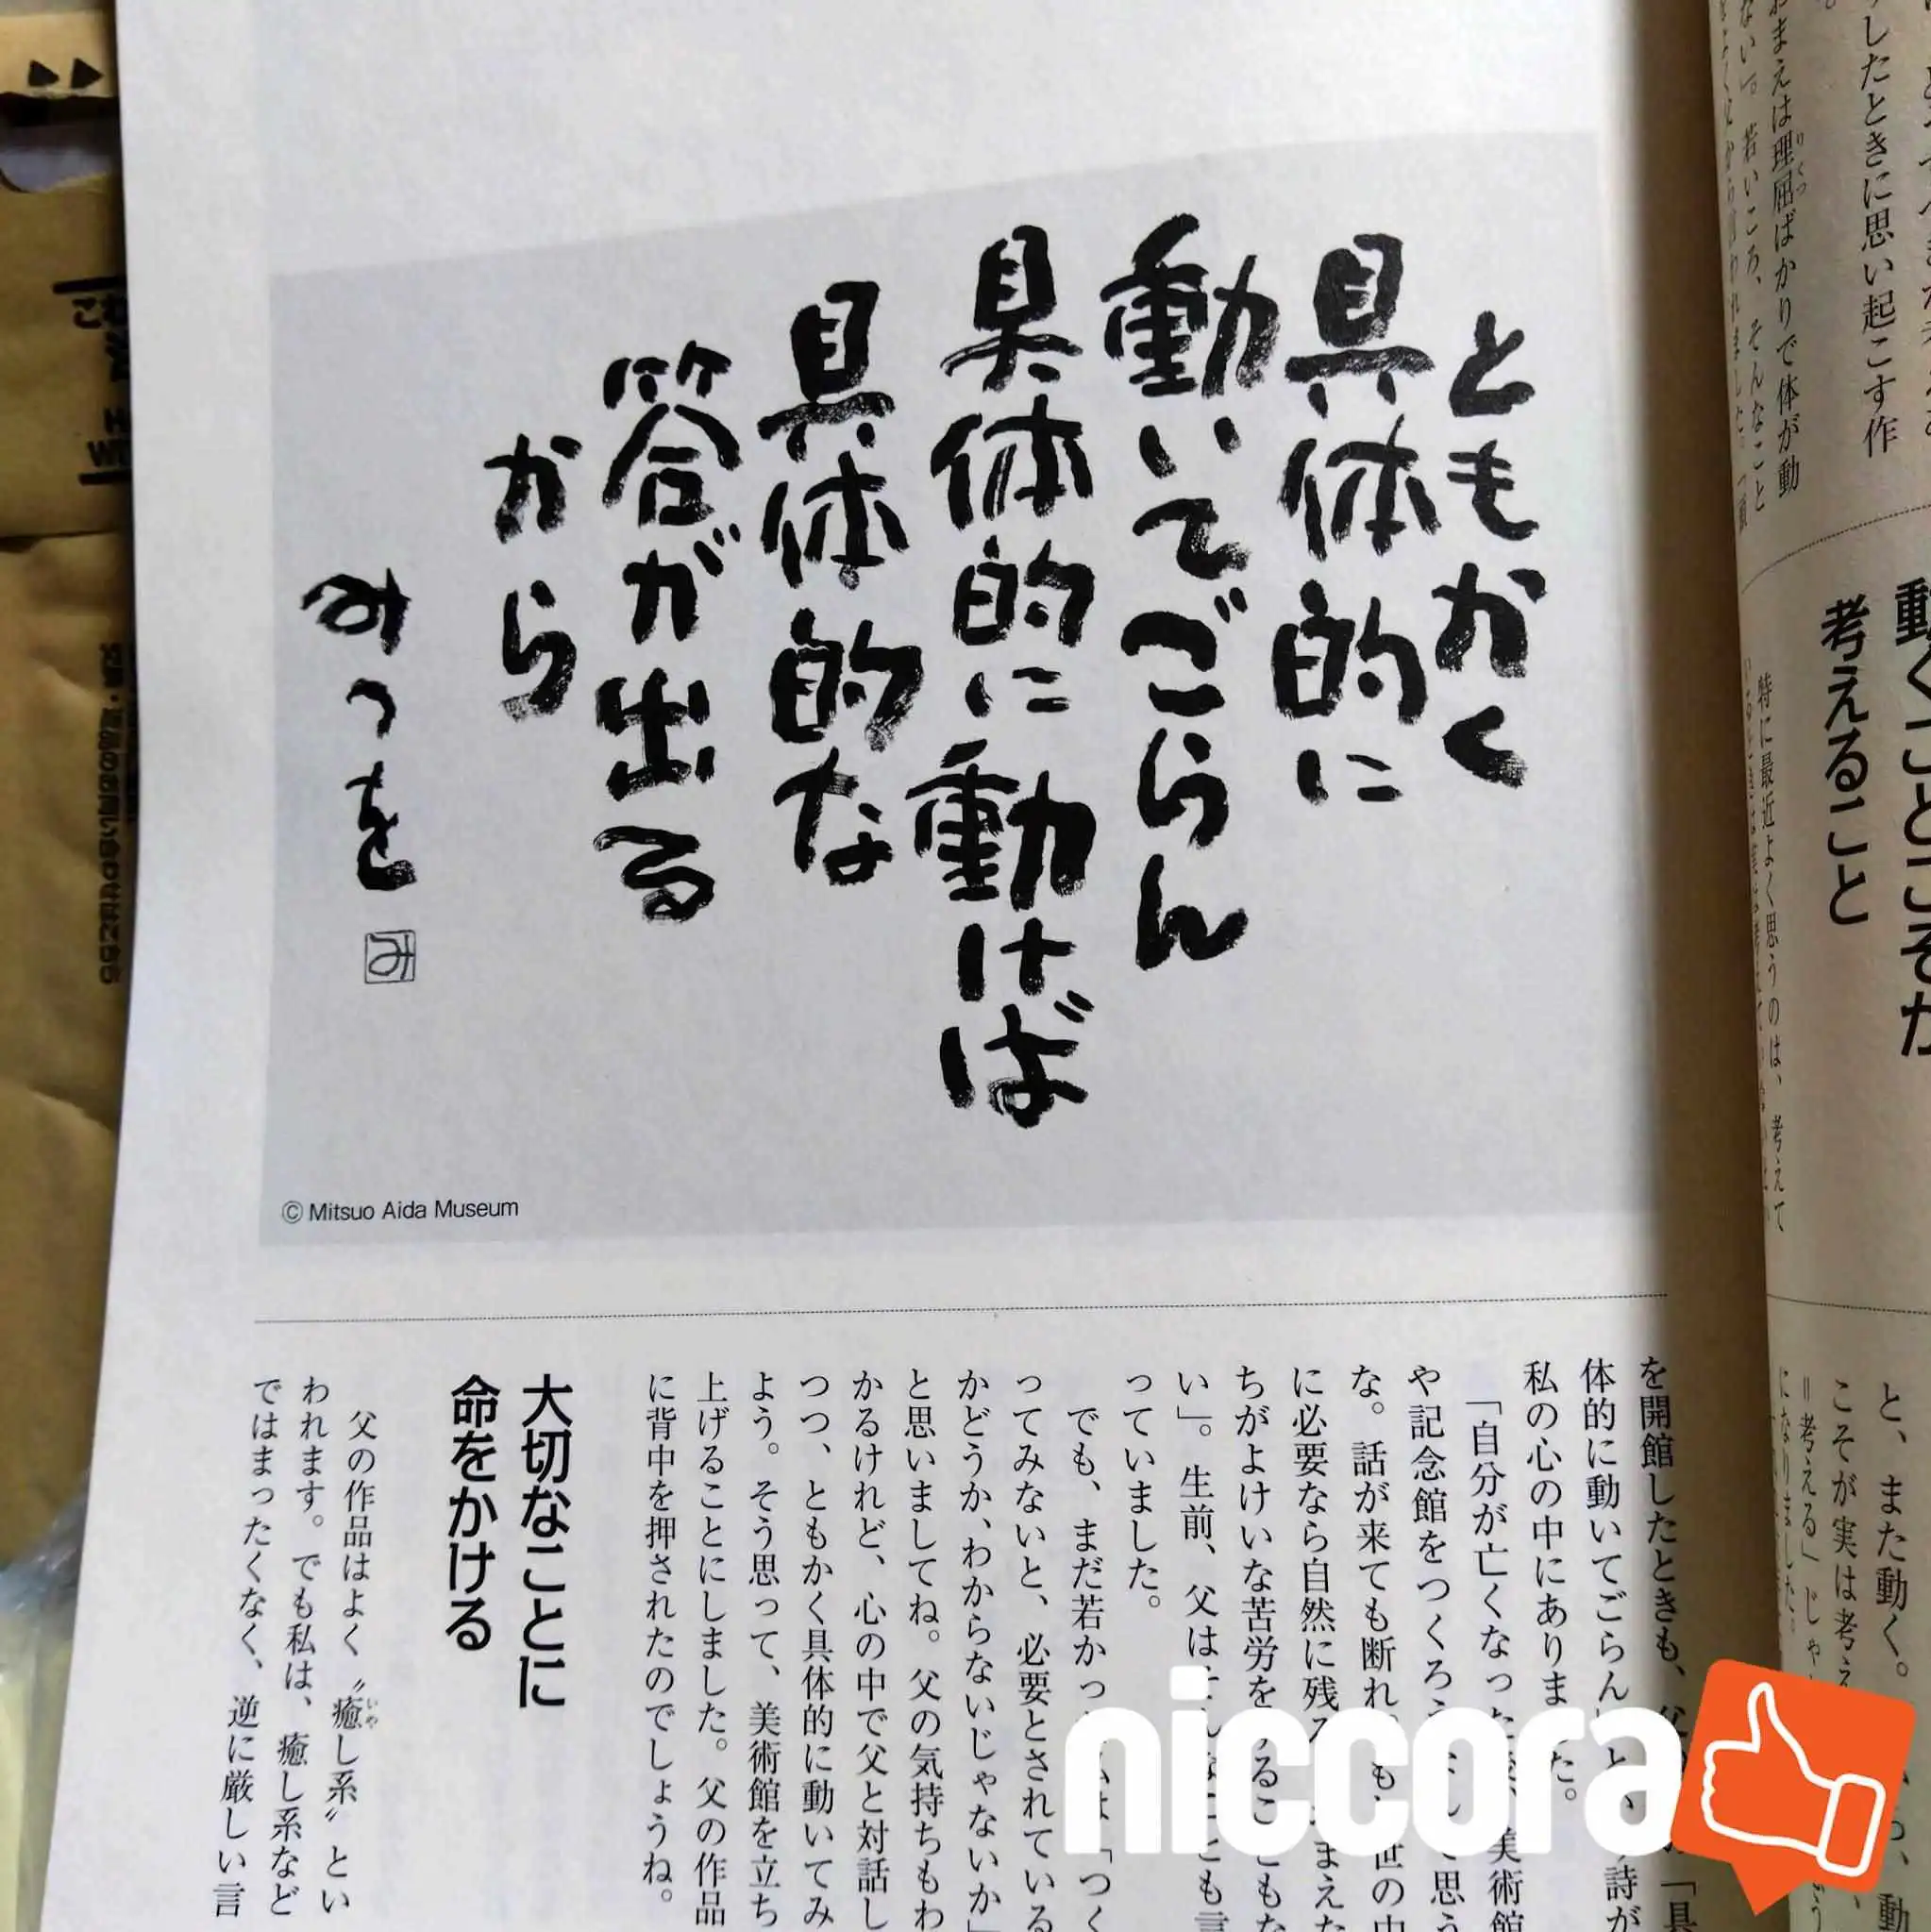 ともかく
具体的に
動いてごらん
具体的に動けば
具体的な
答が出る
から
みつを
み
© Mitsuo Aida Museum
したときに思い起こす作
まえは理屈ばかりで体が動
りくつ
ない」。若いころ、そんなこと
動くことこそが
考えること
特に最近よく思うのは、考えて
を開館したときも、
体的に動いてごらん
私の心の中にありま
た。
「自分が亡くなった
美術館
や記念館をつくろう
て思う
な。話が来ても断れ
も
世の中
に必要なら自然に残る
まえた
ちがよけいな苦労を
るこ
い」。生前、父は
とも言
っていました。
でも、まだ若かっ
は「つく
ってみないと、必要とされている
かどうか、わからないじゃないか」
と思いましてね。父の気持ちもわ
かるけれど、心の中で父と対話し
つつ、ともかく具体的に動いてみ
よう。そう思って、美術館を立ち
上げることにしました。父の作品
に背中を押されたのでしょうね。
大切なことに
命をかける
父の作品はよく〝癒し系〟とい
いや
われます。でも私は、癒し系など
ではまったくなく、逆に厳しい言
と、また動く。
こそが実は考え
=考える」じゃ
になりました。
niccora